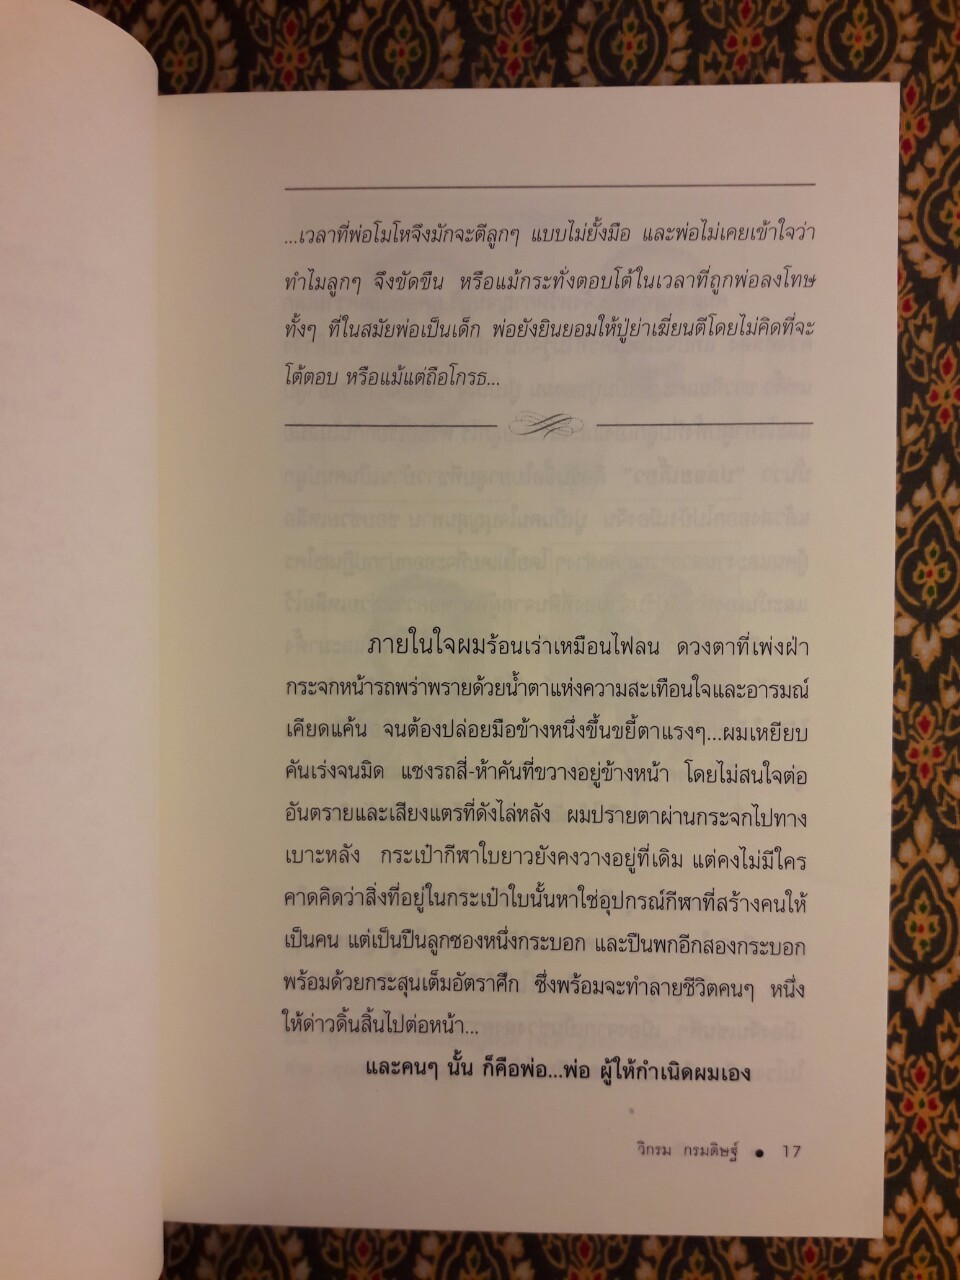 ...เวลาที่พ่อโมโหจึงมักจะตีลูกๆ แบบไม่ยั้งมือ และพ่อไม่เคยเข้าใจว่า
ทำไมลูกๆ จึงขัดขืน หรือแม้กระทั่งตอบโต้ในเวลาที่ถูกพ่อลงโทษ
ทั้งๆ ที่ในสมัยพ่อเป็นเด็ก พ่อยังยินยอมให้ปู่ย่าเฆี่ยนตีโดยไม่คิดที่จะ
โต้ตอบ หรือแม้แต่ถือโกรธ...
ภายในใจผมร้อนเร่าเหมือนไฟลน ดวงตาที่เพ่งฝ่า
กระจกหน้ารถพร่าพรายด้วยน้ำตาแห่งความสะเทือนใจและอารมณ์
เคียดแค้น จนต้องปล่อยมือข้างหนึ่งขึ้นขยี้ตาแรงๆ...ผมเหยียบ
คันเร่งจนมิด แซงรถสี่-ห้าคันที่ขวางอยู่ข้างหน้า โดยไม่สนใจต่อ
อันตรายและเสียงแตรที่ดังไล่หลัง ผมปรายตาผ่านกระจกไปทาง
เบาะหลัง กระเป๋ากีฬาใบยาวยังคงวางอยู่ที่เดิม แต่คงไม่มีใคร
คาดคิดว่าสิ่งที่อยู่ในกระเป๋าใบนั้นหาใช่อุปกรณ์กีฬาที่สร้างคนให้
เป็นคน แต่เป็นปืนลูกซองหนึ่งกระบอก และปืนพกอีกสองกระบอก
พร้อมด้วยกระสุนเต็มอัตราศึก ซึ่งพร้อมจะทำลายชีวิตคนๆ หนึ่ง
ให้ด่าวดิ้นสิ้นไปต่อหน้า...
และคนๆ นั้น ก็คือพ่อ...พ่อ ผู้ให้กำเนิดผมเอง
วิกรม กรมดิษฐ์ ● 17